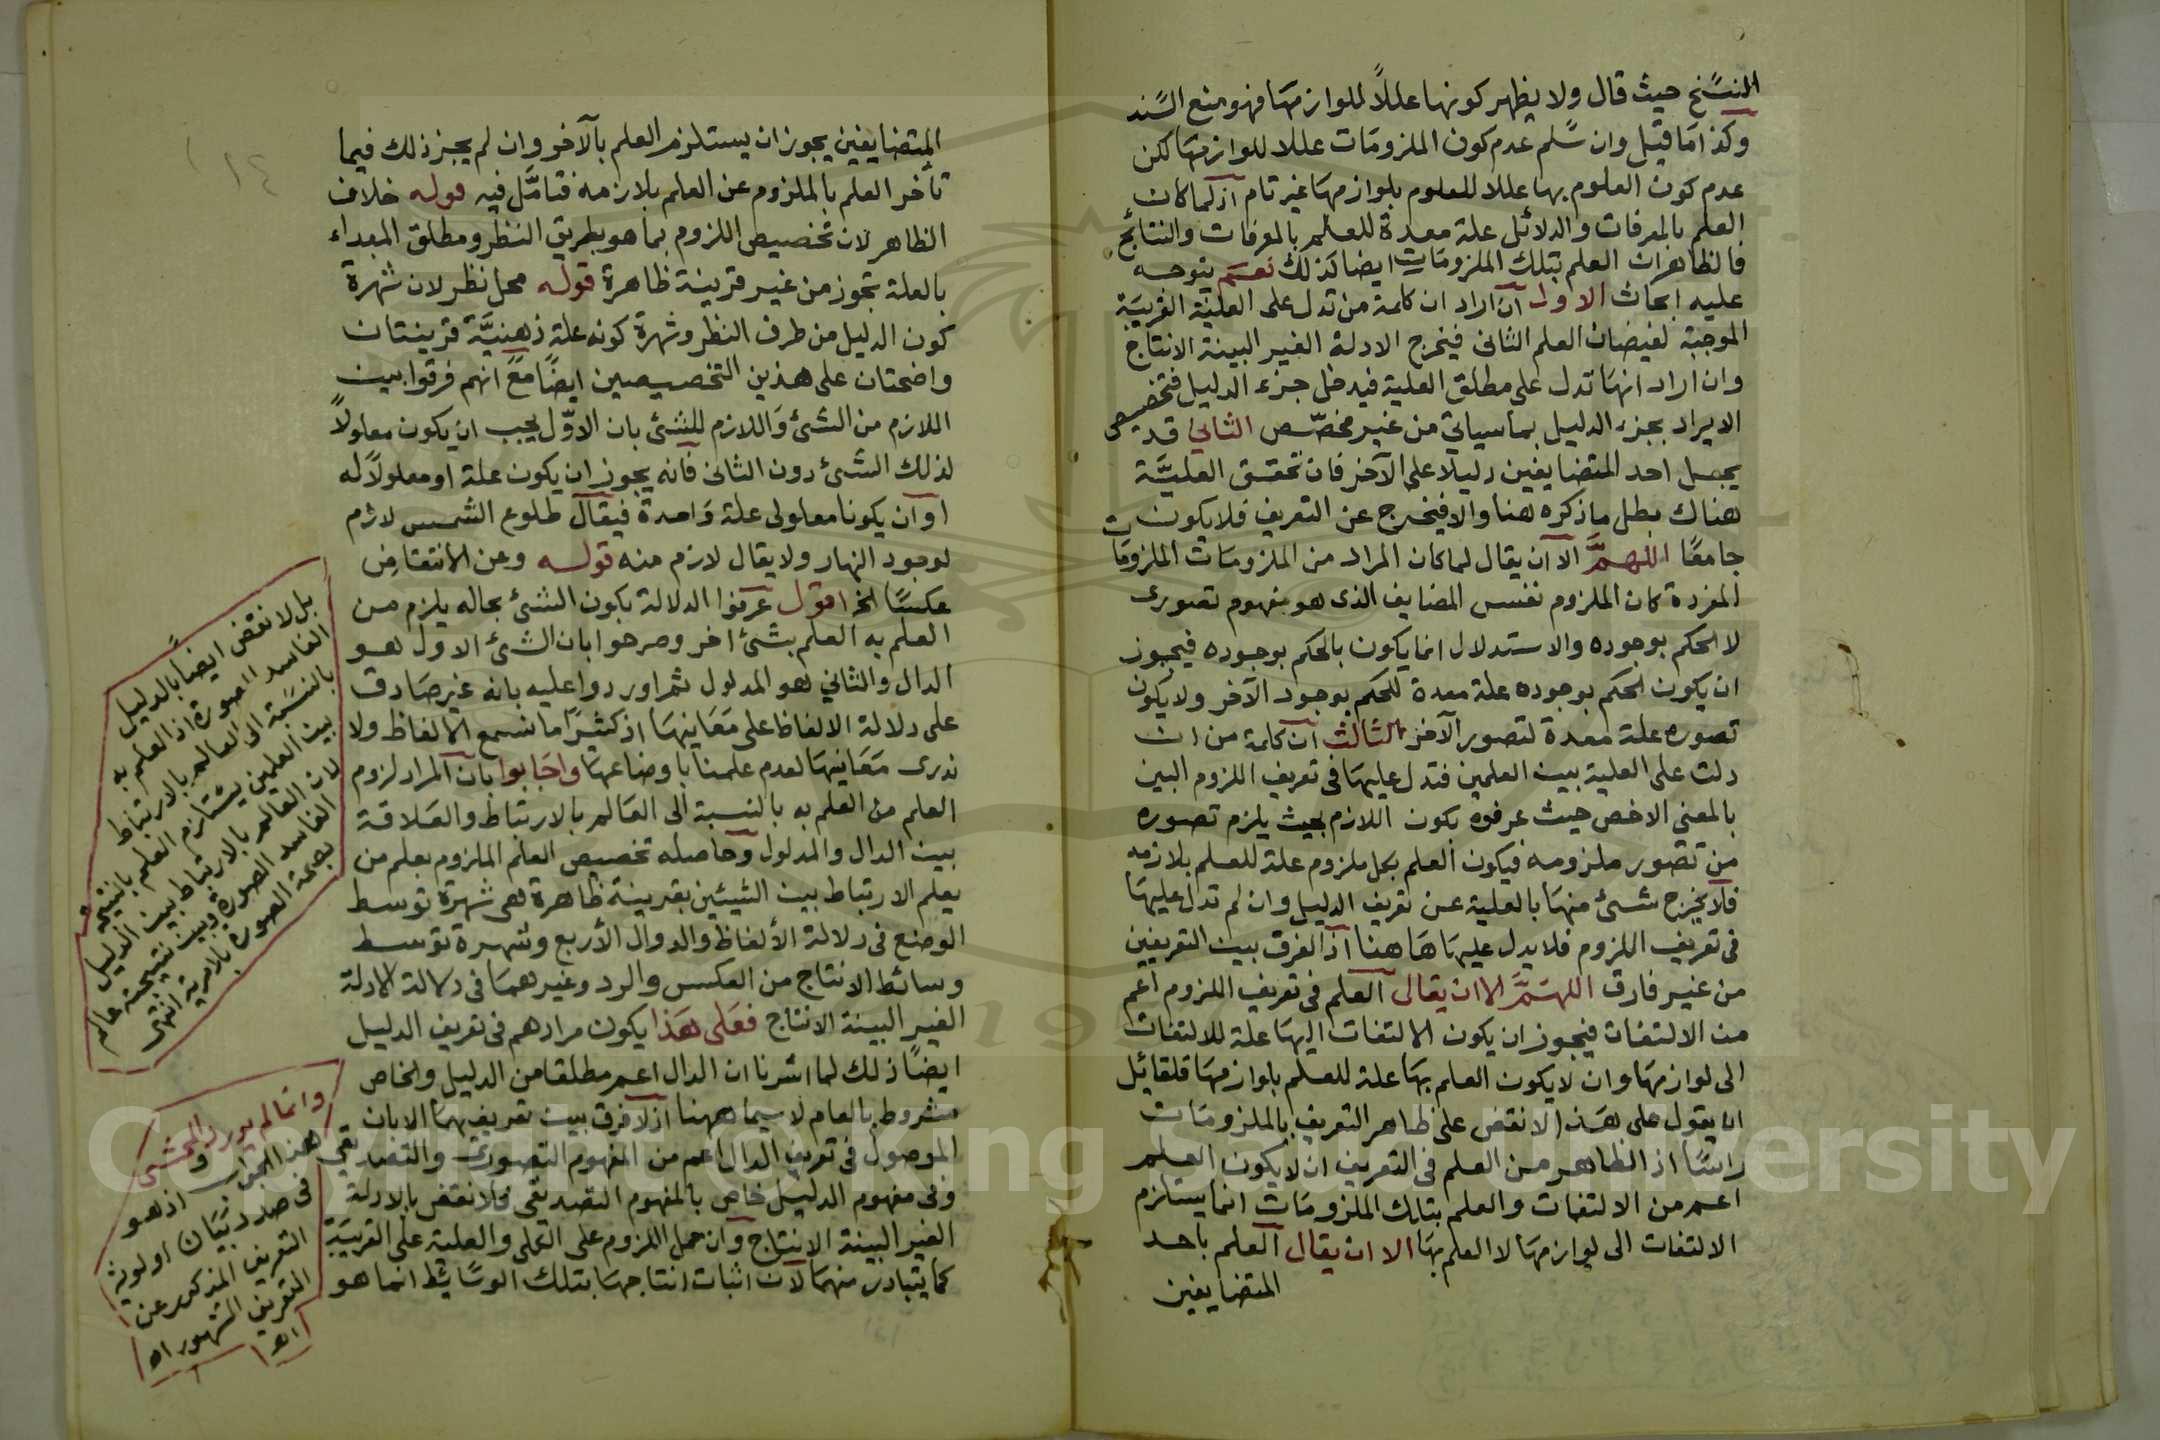 النسخ حيث قال ولا يظهر كونها عللاً للوازمها فهو منع السند
وكذا ما قيل وان سلم عدم كون الملزومات عللا للوازمها لكن
عدم كون العلوم بها عللا للعلوم بلوازمها غير تام اذ كما كان
العلم بالمعرفات والدلائل علة معدة للعلم بالمعرفات والنتائج
فالظاهر ان العلم بتلك الملزومات ايضا كذلك نعم يتوجه
عليه ابحاث الاول ان اراد ان كلمة من تدل على العلية القريبة
الموجبة لفيضان العلم الثانى فيخرج الادلة الغير البينة الانتاج
وان اراد انها تدل على مطلق العلية فيدخل جزء الدليل فتخصيص
الايراد بجزء الدليل بما سياتى من غير مخصص الثانى قد
يجعل احد المتضايفين دليلا على الآخر فان تحقق العلية
هناك بطل ما ذكره هنا والا فيخرج عن التعريف فلا يكون
جامعًا اللهم الا ان يقال لما كان المراد من الملزومات الملزومات
المفردة كان الملزوم نفس المضايف الذى هو مفهوم تصورى
لا الحكم بوجوده والاستدلال انما يكون بالحكم بوجوده فيجوز
ان يكون الحكم بوجوده علة معدة للحكم بوجود الآخر ولا يكون
تصوره علة معدة لتصور الآخر الثالث ان كلمة من ان
دلت على العلية بين العلمين فتدل عليها فى تعريف اللزوم البين
بالمعنى الاخص حيث عرفوه بكون اللازم بحيث يلزم تصوره
من تصور ملزومه فيكون العلم بكل ملزوم علة للعلم بلازمه
فلا يخرج شئ منها بالعلية عن تعريف الدليل وان لم تدل عليها
فى تعريف اللزوم فلا يدل عليها هاهنا اذ الفرق بين التعريفين
من غير فارق اللهم الا ان يقال العلم فى تعريف اللزوم اعم
من الالتفات فيجوز ان يكون الالتفات اليها علة للالتفات
الى لوازمها وان لا يكون العلم بها علة للعلم بلوازمها فلقائل
ان يقول على هذا الا نقض على ظاهر التعريف بالملزومات
راسًا اذ الظاهر من العلم فى التعريف ان لا يكون العلم
اعم من الالتفات والعلم بتلك الملزومات انما يستلزم
الالتفات الى لوازمها لا العلم بها الا ان يقال العلم باحد
المتضايفين
المتضايفين يجوز ان يستلزم العلم بالآخر وان لم يجز ذلك فيما
تأخر العلم بالملزوم عن العلم بلازمه فتامل فيه قوله خلاف
الظاهر لان تخصيص اللزوم بما هو بطريق النظر ومطلق المبداء
بالعلة تجوز من غير قرينة ظاهرة قوله محل نظر لان شهرة
كون الدليل من طرف النظر وشهرة كونه علة ذهنية قرينتان
واضحتان على هذين التخصيصين ايضًا مع انهم فرقوا بين
اللازم من الشئ واللازم للشئ بان الاول يجب ان يكون معلولاً
لذلك الشئ دون الثانى فانه يجوز ان يكون علة او معلولاً له
او ان يكونا معلولى علة واحدة فيقال طلوع الشمس لازم
لوجود النهار ولا يقال لازم منه قوله ومن الانتقاض
عكسًا الخ اقول عرفوا الدلالة بكون الشئ بحاله يلزم من
العلم به العلم بشئ اخر وصرحوا بان الشئ الاول هو
الدال والثانى هو المدلول ثم اوردوا عليه بانه غير صادق
على دلالة الالفاظ على معانيها اذ كثيرًا ما نسمع الالفاظ ولا
ندرى معانيها لعدم علمنا باوضاعها واجابوا بان المراد لزوم
العلم من العلم به بالنسبة الى العالم بالارتباط والعلاقة
بين الدال والمدلول وحاصله تخصيص العلم الملزوم بعلم من
يعلم الارتباط بين الشيئين بقرينة ظاهرة هى شهرة توسط
الوضع فى دلالة الألفاظ والدوال الأربع وشهرة توسط
وسائط الانتاج من العكس والرد وغيرهما فى دلالة الادلة
الغير البينة الانتاج فعلى هذا يكون مرادهم فى تعريف الدليل
ايضًا ذلك لما اشرنا ان الدال اعم مطلقا من الدليل والخاص
مشروط بالعام لا سيما ههنا اذ لا فرق بين تعريفيهما الا بان
الموصول فى تعريف الدال اعم من المفهوم التصورى والتصديقى
وفى مفهوم الدليل خاص بالمفهوم التصديقى فلا نقض بالادلة
الغير البينة الانتاج وان حمل اللزوم على العلى والعلية على القريبة
كما يتبادر منهما لان اثبات انتاجها بتلك الوسائط انما هو
بل لا نقض ايضا بالدليل
الفاسد الصورة اذ العلم به
بالنسبة الى العالم بالارتباط
بين العلمين يستلزم العلم بالنتيجة
لان العالم بالارتباط بين الدليل
الفاسد الصورة وبين نتيجته عالم
بصحة الصورة بلا مرية انتهى
وانما لم يورد المحشى
هذا الجواب اذ هو
فى صدد بيان اولوية
التعريف المذكور عن
التعريف المشهور اه